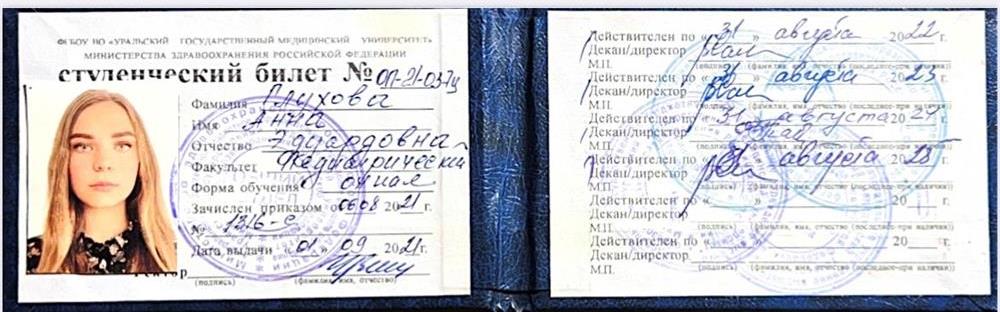 ФГБОУ ВО «УРАЛЬСКИЙ ГОСУДАРСТВЕННЫЙ МЕДИЦИНСКИЙ УНИВЕРСИТЕТ»
МИНИСТЕРСТВА ЗДРАВООХРАНЕНИЯ РОССИЙСКОЙ ФЕДЕРАЦИИ
студенческий билет № ОП-21-0374
Фамилия Глухова
Имя Анна
Отчество Эдуардовна
Факультет Педиатрический
Форма обучения очная
Зачислен приказом от 06 08 2021 г.
№ 1316-с
Дата выдачи «01» 09 2021 г.
Ректор
(подпись) (фамилия, имя, отчество)
Действителен по «31» августа 2022 г.
Декан/директор
М.П. (подпись) (фамилия, имя, отчество (последнее-при наличии))
Действителен по «31» августа 2023 г.
Декан/директор
М.П. (подпись) (фамилия, имя, отчество (последнее-при наличии))
Действителен по «31 августа 2024 г.
Декан/директор
М.П. (подпись) (фамилия, имя, отчество (последнее-при наличии))
Действителен по «31» августа 2025 г.
Декан/директор
М.П. (подпись) (фамилия, имя, отчество (последнее-при наличии))
Действителен по « » 20 г.
Декан/директор
М.П. (подпись) (фамилия, имя, отчество (последнее-при наличии))
Действителен по « » 20 г.
Декан/директор
М.П. (подпись) (фамилия, имя, отчество (последнее-при наличии))